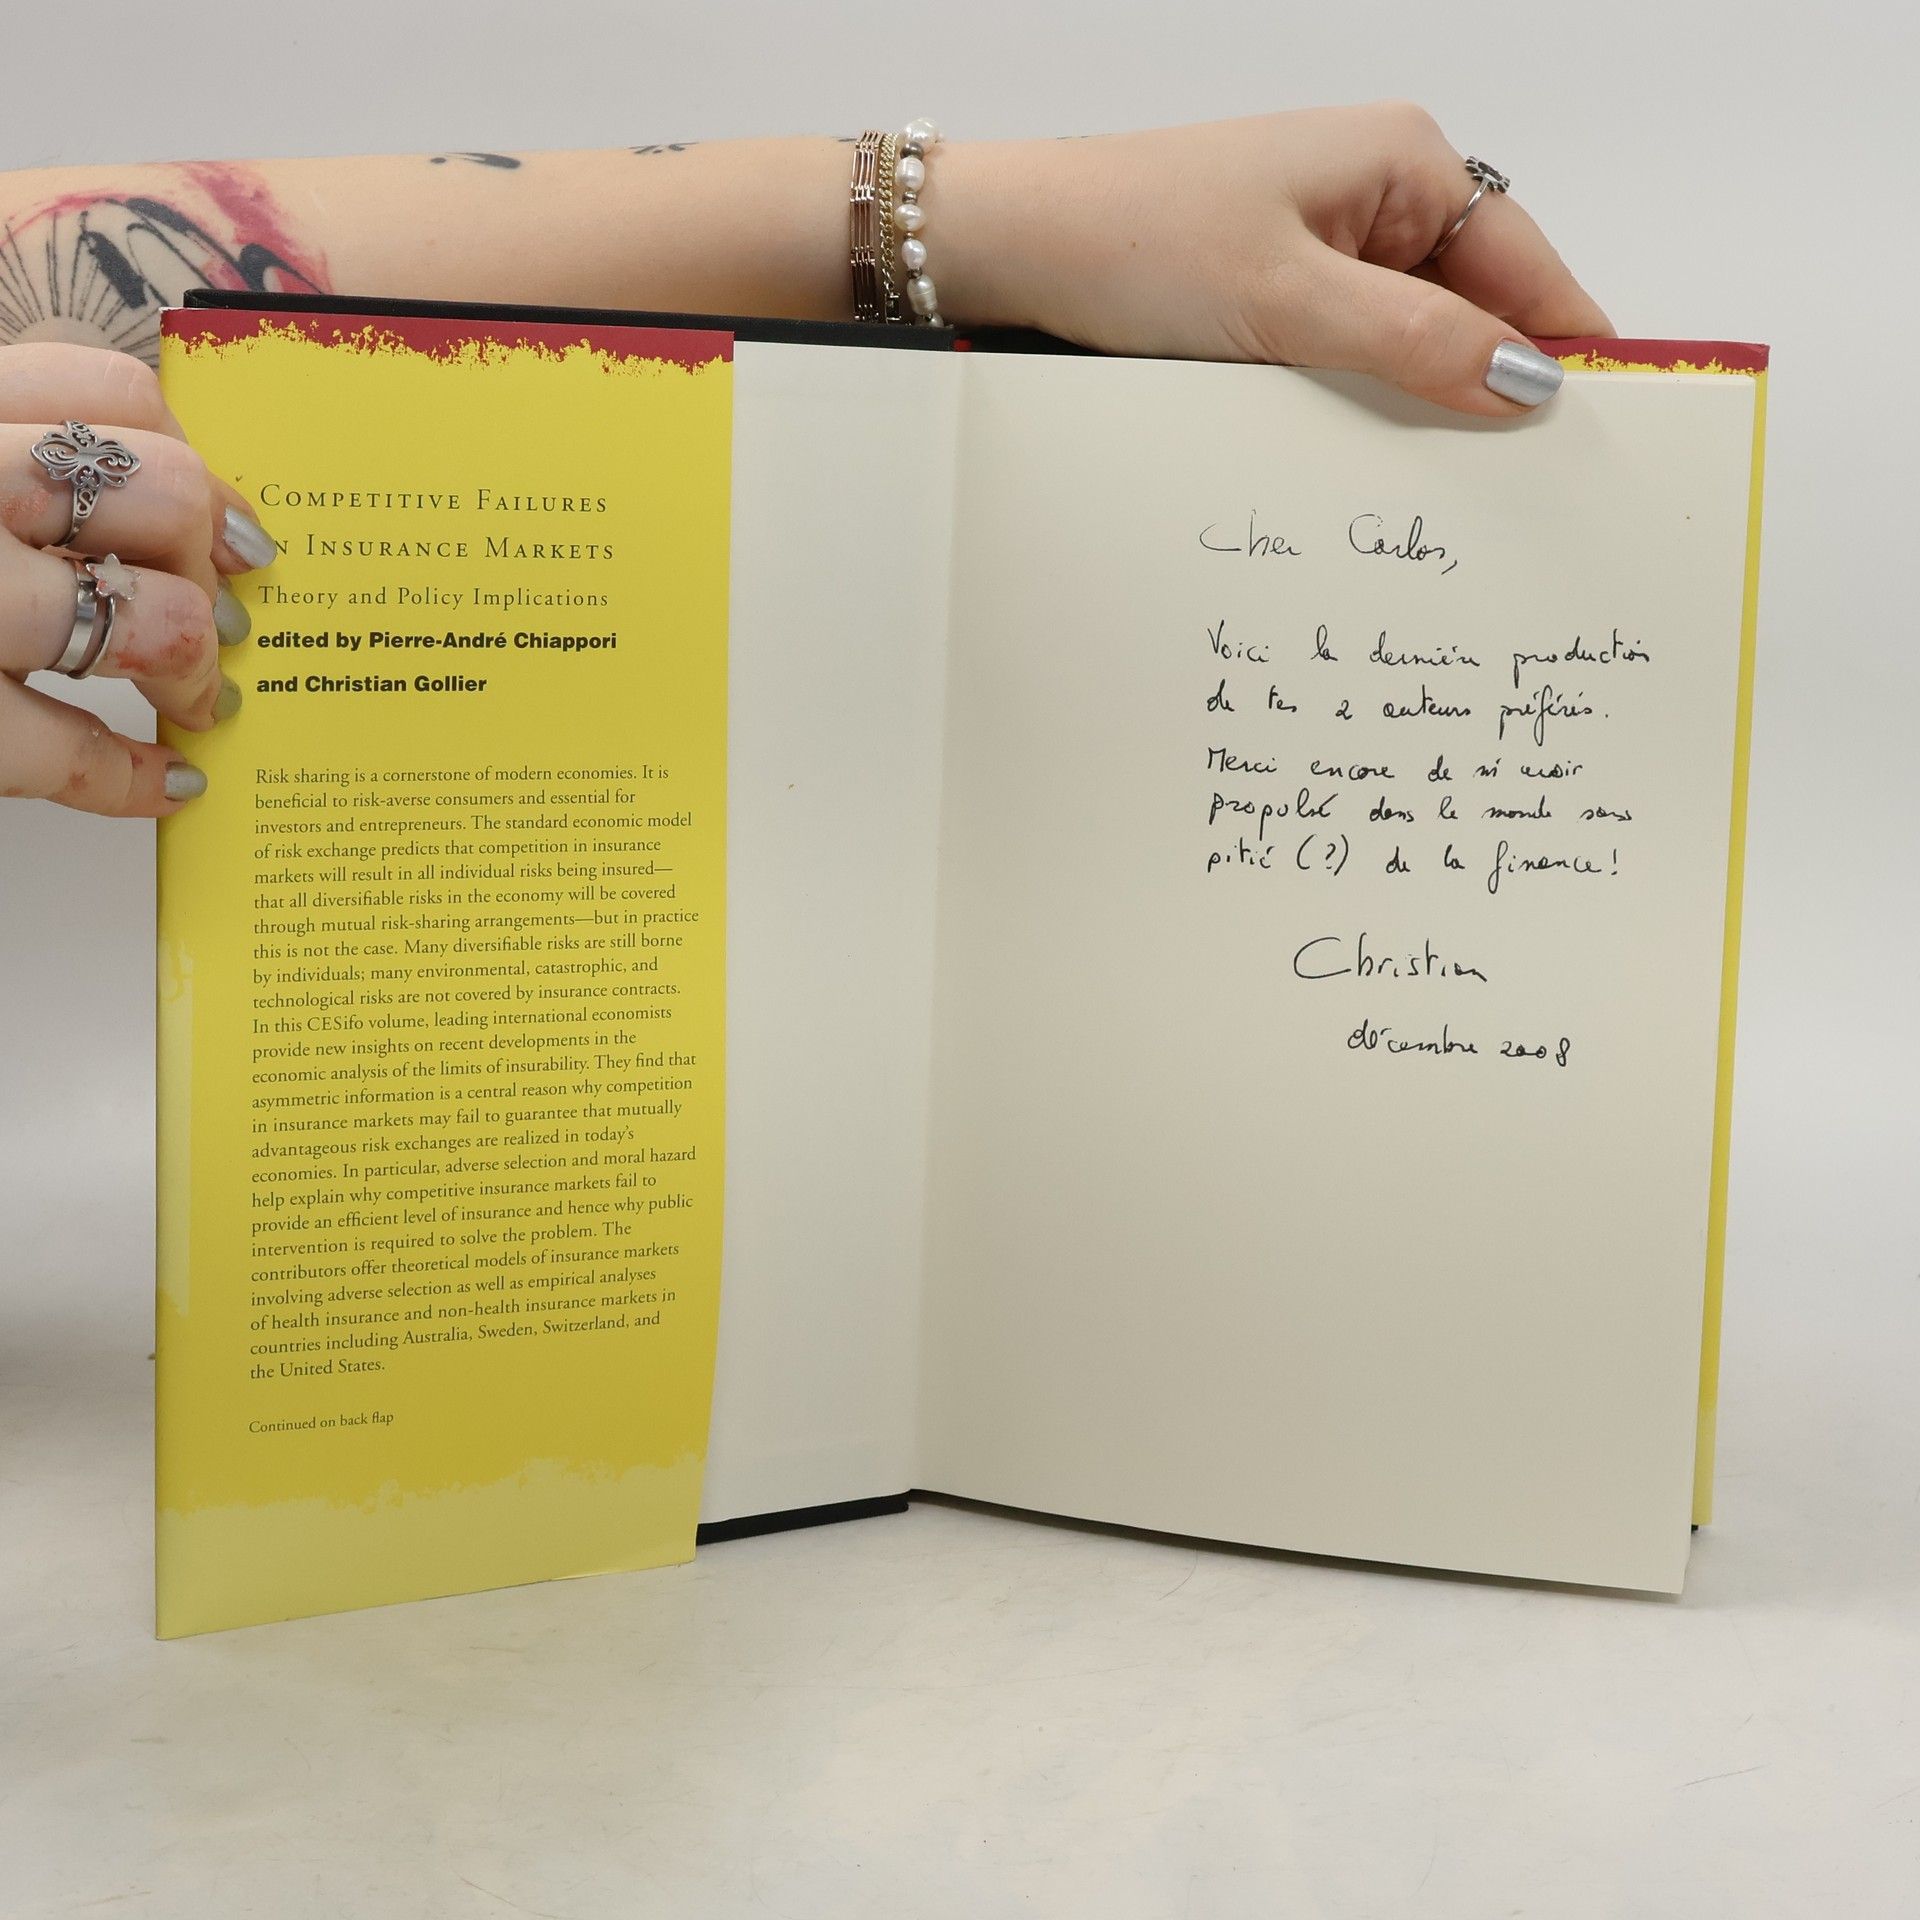 COMPETITIVE FAILURES
N INSURANCE MARKETS
Theory and Policy Implications
edited by Pierre-André Chiappori
and Christian Gollier
Risk sharing is a cornerstone of modern economies. It is
beneficial to risk-averse consumers and essential for
investors and entrepreneurs. The standard economic model
of risk exchange predicts that competition in insurance
markets will result in all individual risks being insured—
that all diversifiable risks in the economy will be covered
through mutual risk-sharing arrangements—but in practice
this is not the case. Many diversifiable risks are still borne
by individuals; many environmental, catastrophic, and
technological risks are not covered by insurance contracts.
In this CESifo volume, leading international economists
provide new insights on recent developments in the
economic analysis of the limits of insurability. They find that
asymmetric information is a central reason why competition
in insurance markets may fail to guarantee that mutually
advantageous risk exchanges are realized in today's
economies. In particular, adverse selection and moral hazard
help explain why competitive insurance markets fail to
provide an efficient level of insurance and hence why public
intervention is required to solve the problem. The
contributors offer theoretical models of insurance markets
involving adverse selection as well as empirical analyses
of health insurance and non-health insurance markets in
countries including Australia, Sweden, Switzerland, and
the United States.
Continued on back flap
Cher Carlos,
Voici la dernière production
de tes 2 auteurs préférés.
Merci encore de m'avoir
propulsé dans le monde sans
pitié (?) de la finance!
Christian
décembre 2008